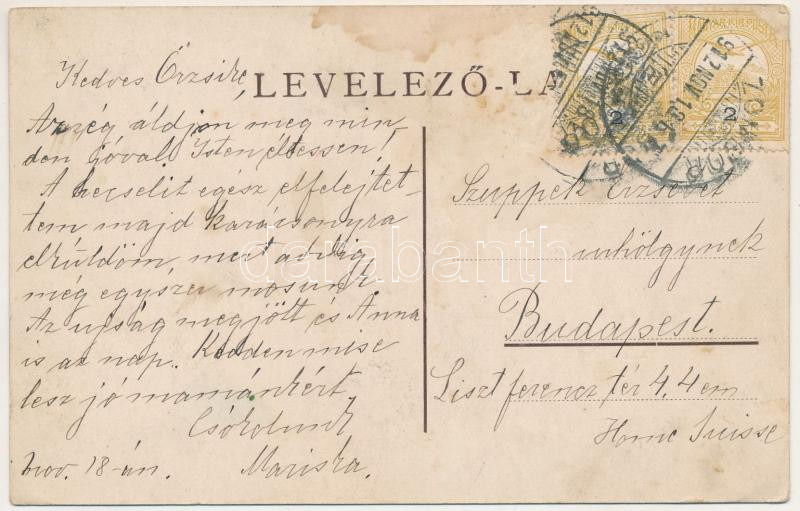 LEVELEZŐ-LA
Kedves Őrzsike,
Az ég áldjon meg min
den jóval! Isten éltessen!
A hecselit egész elfelejtet-
tem majd karácsonyra
elküldöm, mert addig
még egyszer mosunk.
Az ujság megjött és Anna
is az nap. Kedden mise
lesz jó mamánkért
Csókolunk
nov. 18-án. Mariska.
912 NOV 18
ZOMBOR
2
2
Szuppek Erzsébet
urhölgynek
Budapest.
Liszt ferencz tér 4. 4 em
Home Suisse
darabanth